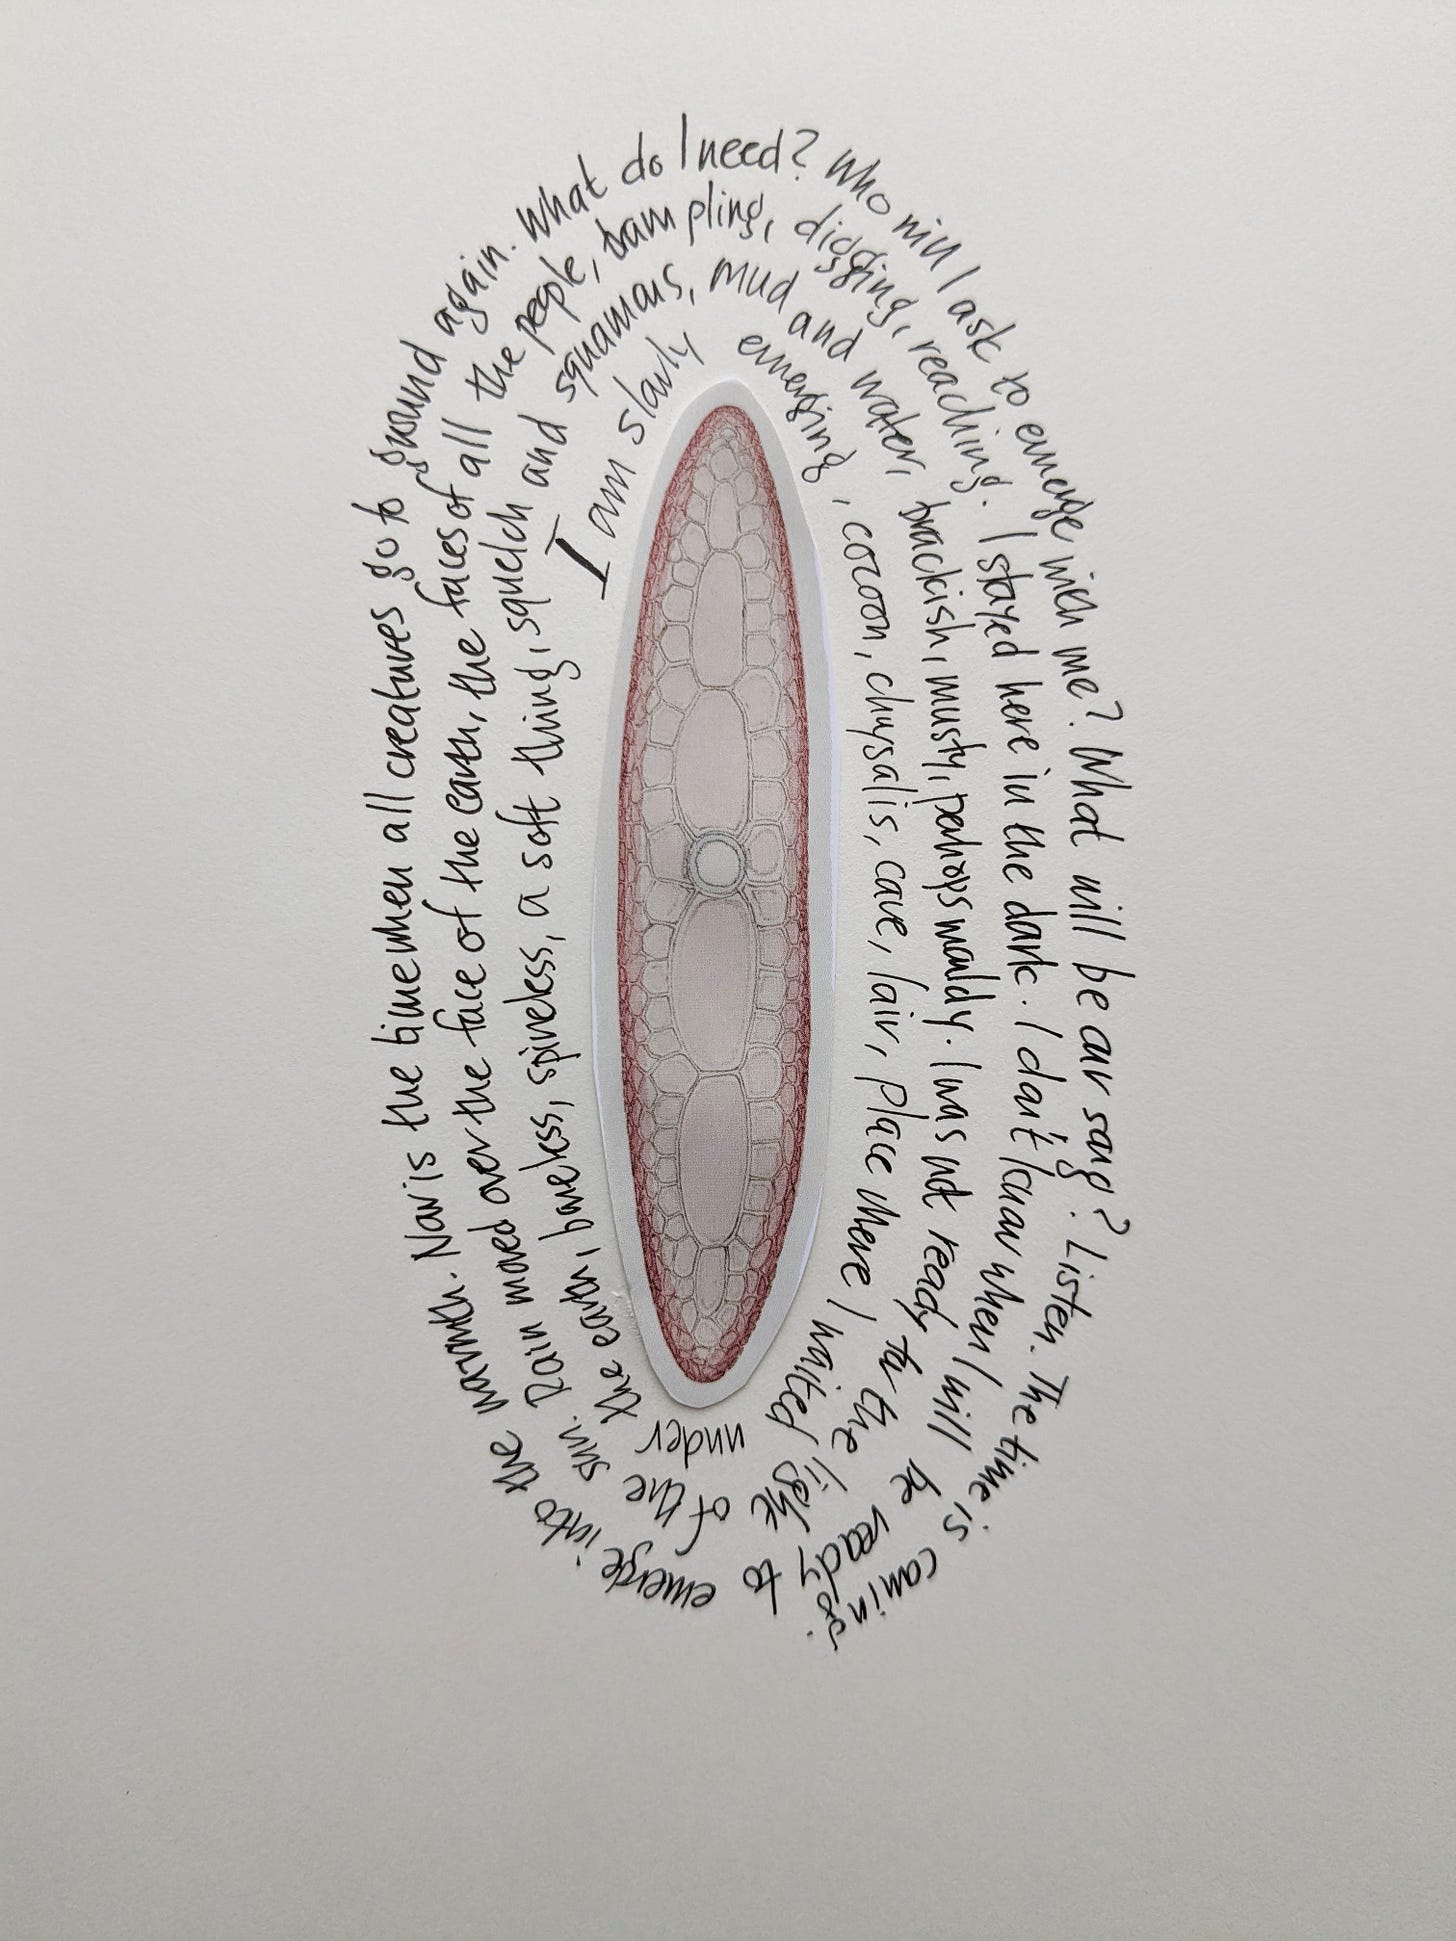 I am slowly emerging, cocoon, chrysalis, cave, lair, place where I waited under
the earth, boneless, spineless, a soft thing, squelch and squamous, mud and water, brackish, musty, perhaps mouldy. I was not ready for the light of the
sun. Rain moved over the face of the earth, the faces of all the people, trampling, digging, reaching. I stayed here in the dark. I don't know when I will be ready to emerge into
the warmth. Now is the time when all creatures go to ground again. What do I need? Who will I ask to emerge with me? What will be our song? Listen. The time is